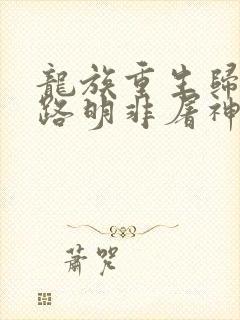 龍族重生歸
路明非屠神
蕭咒